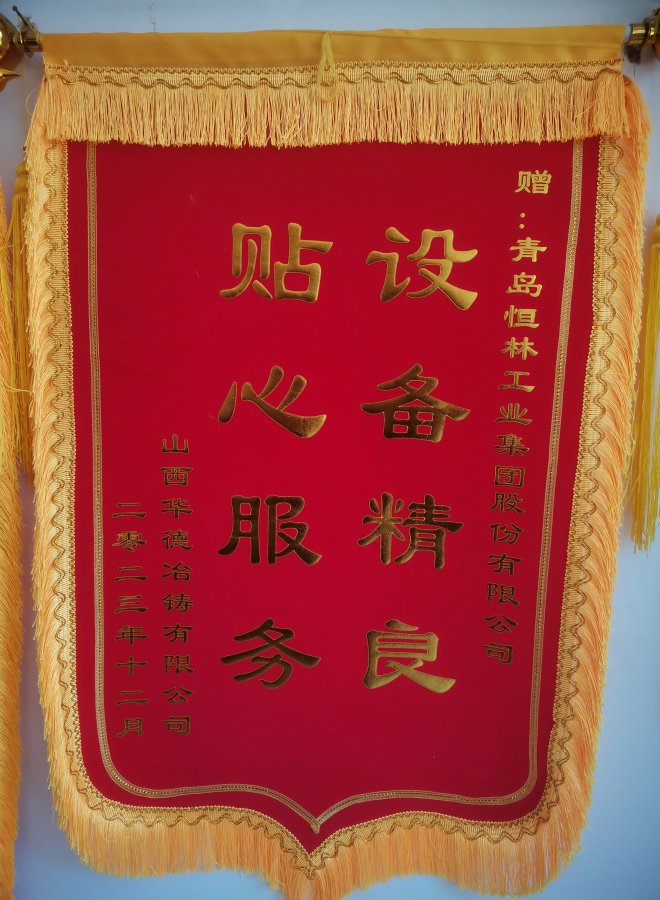 赠：青岛恒林工业集团股份有限公司
设备精良
贴心服务
山西华德冶铸有限公司
二零二三年十二月